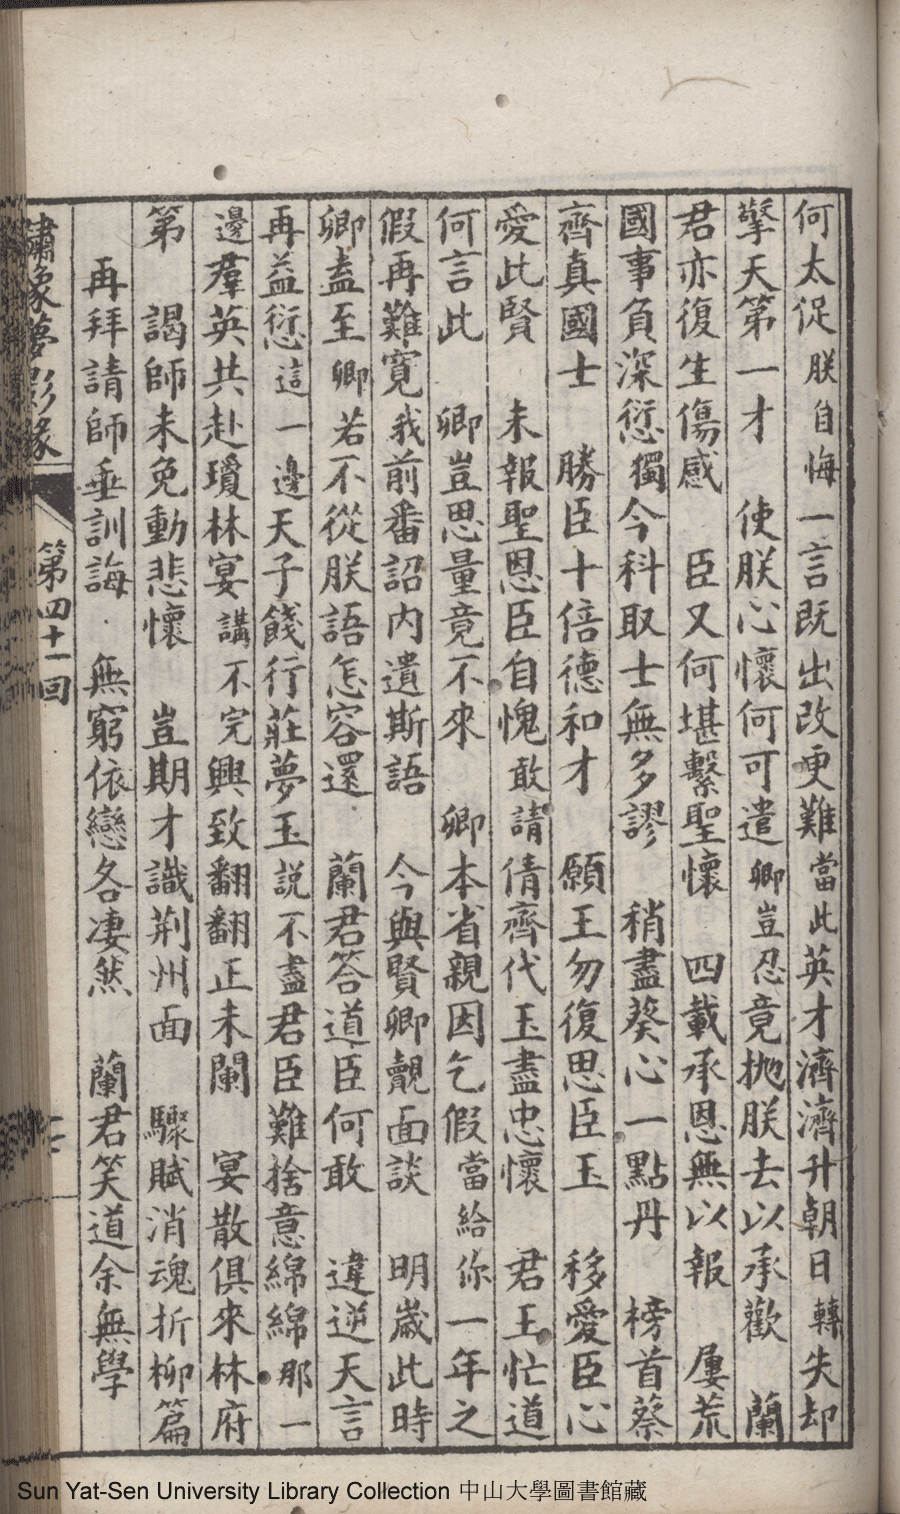 何太促　朕自悔一言既出改更難當此英才濟濟升朝日轉失却
擎天第一才　使朕心懷何可遣卿豈忍竟抛朕去以承歡　蘭
君亦復生傷感　臣又何堪繫聖懷　四載承恩無以報　屢荒
國事負深愆獨今科取士無多謬　稍盡葵心一點丹　榜首蔡
齊真國士　勝臣十倍德和才　願王勿復思臣玉　移愛臣心
愛此賢　未報聖恩臣自愧敢請倩齊代玉盡忠懷　君王忙道
何言此　卿豈思量竟不來　卿本省親因乞假當給你一年之
假再難寬我前番詔內遺斯語　今與賢卿覿面談　明歲此時
卿盍至卿若不從朕語怎容還　蘭君答道臣何敢　違逆天言
再益愆這一邊天子餞行莊夢玉説不盡君臣難捨意綿綿那一
邊羣英共赴瓊林宴講不完興致翩翩正未闌　宴散俱來林府
第　謁師未免動悲懷　豈期才識荆州面　驟賦消魂折柳篇
再拜請師垂訓誨　無窮依戀各凄然　蘭君笑道余無學
繡像夢影緣　第四十一回
Sun Yat-Sen University Library Collection 中山大學圖書館藏